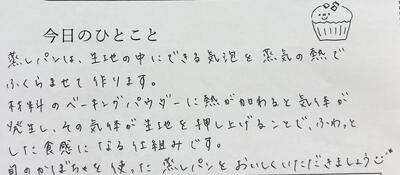 今日のひとこと
蒸しパンは、生地の中にできる気泡を蒸気の熱で
ふくらませて作ります。
材料のベーキングパウダーに熱が加わると気体が
発生し、その気体が生地を押し上げることで、ふわっと
した食感になる仕組みです。
旬のかぼちゃを使った蒸しパンをおいしくいただきましょう